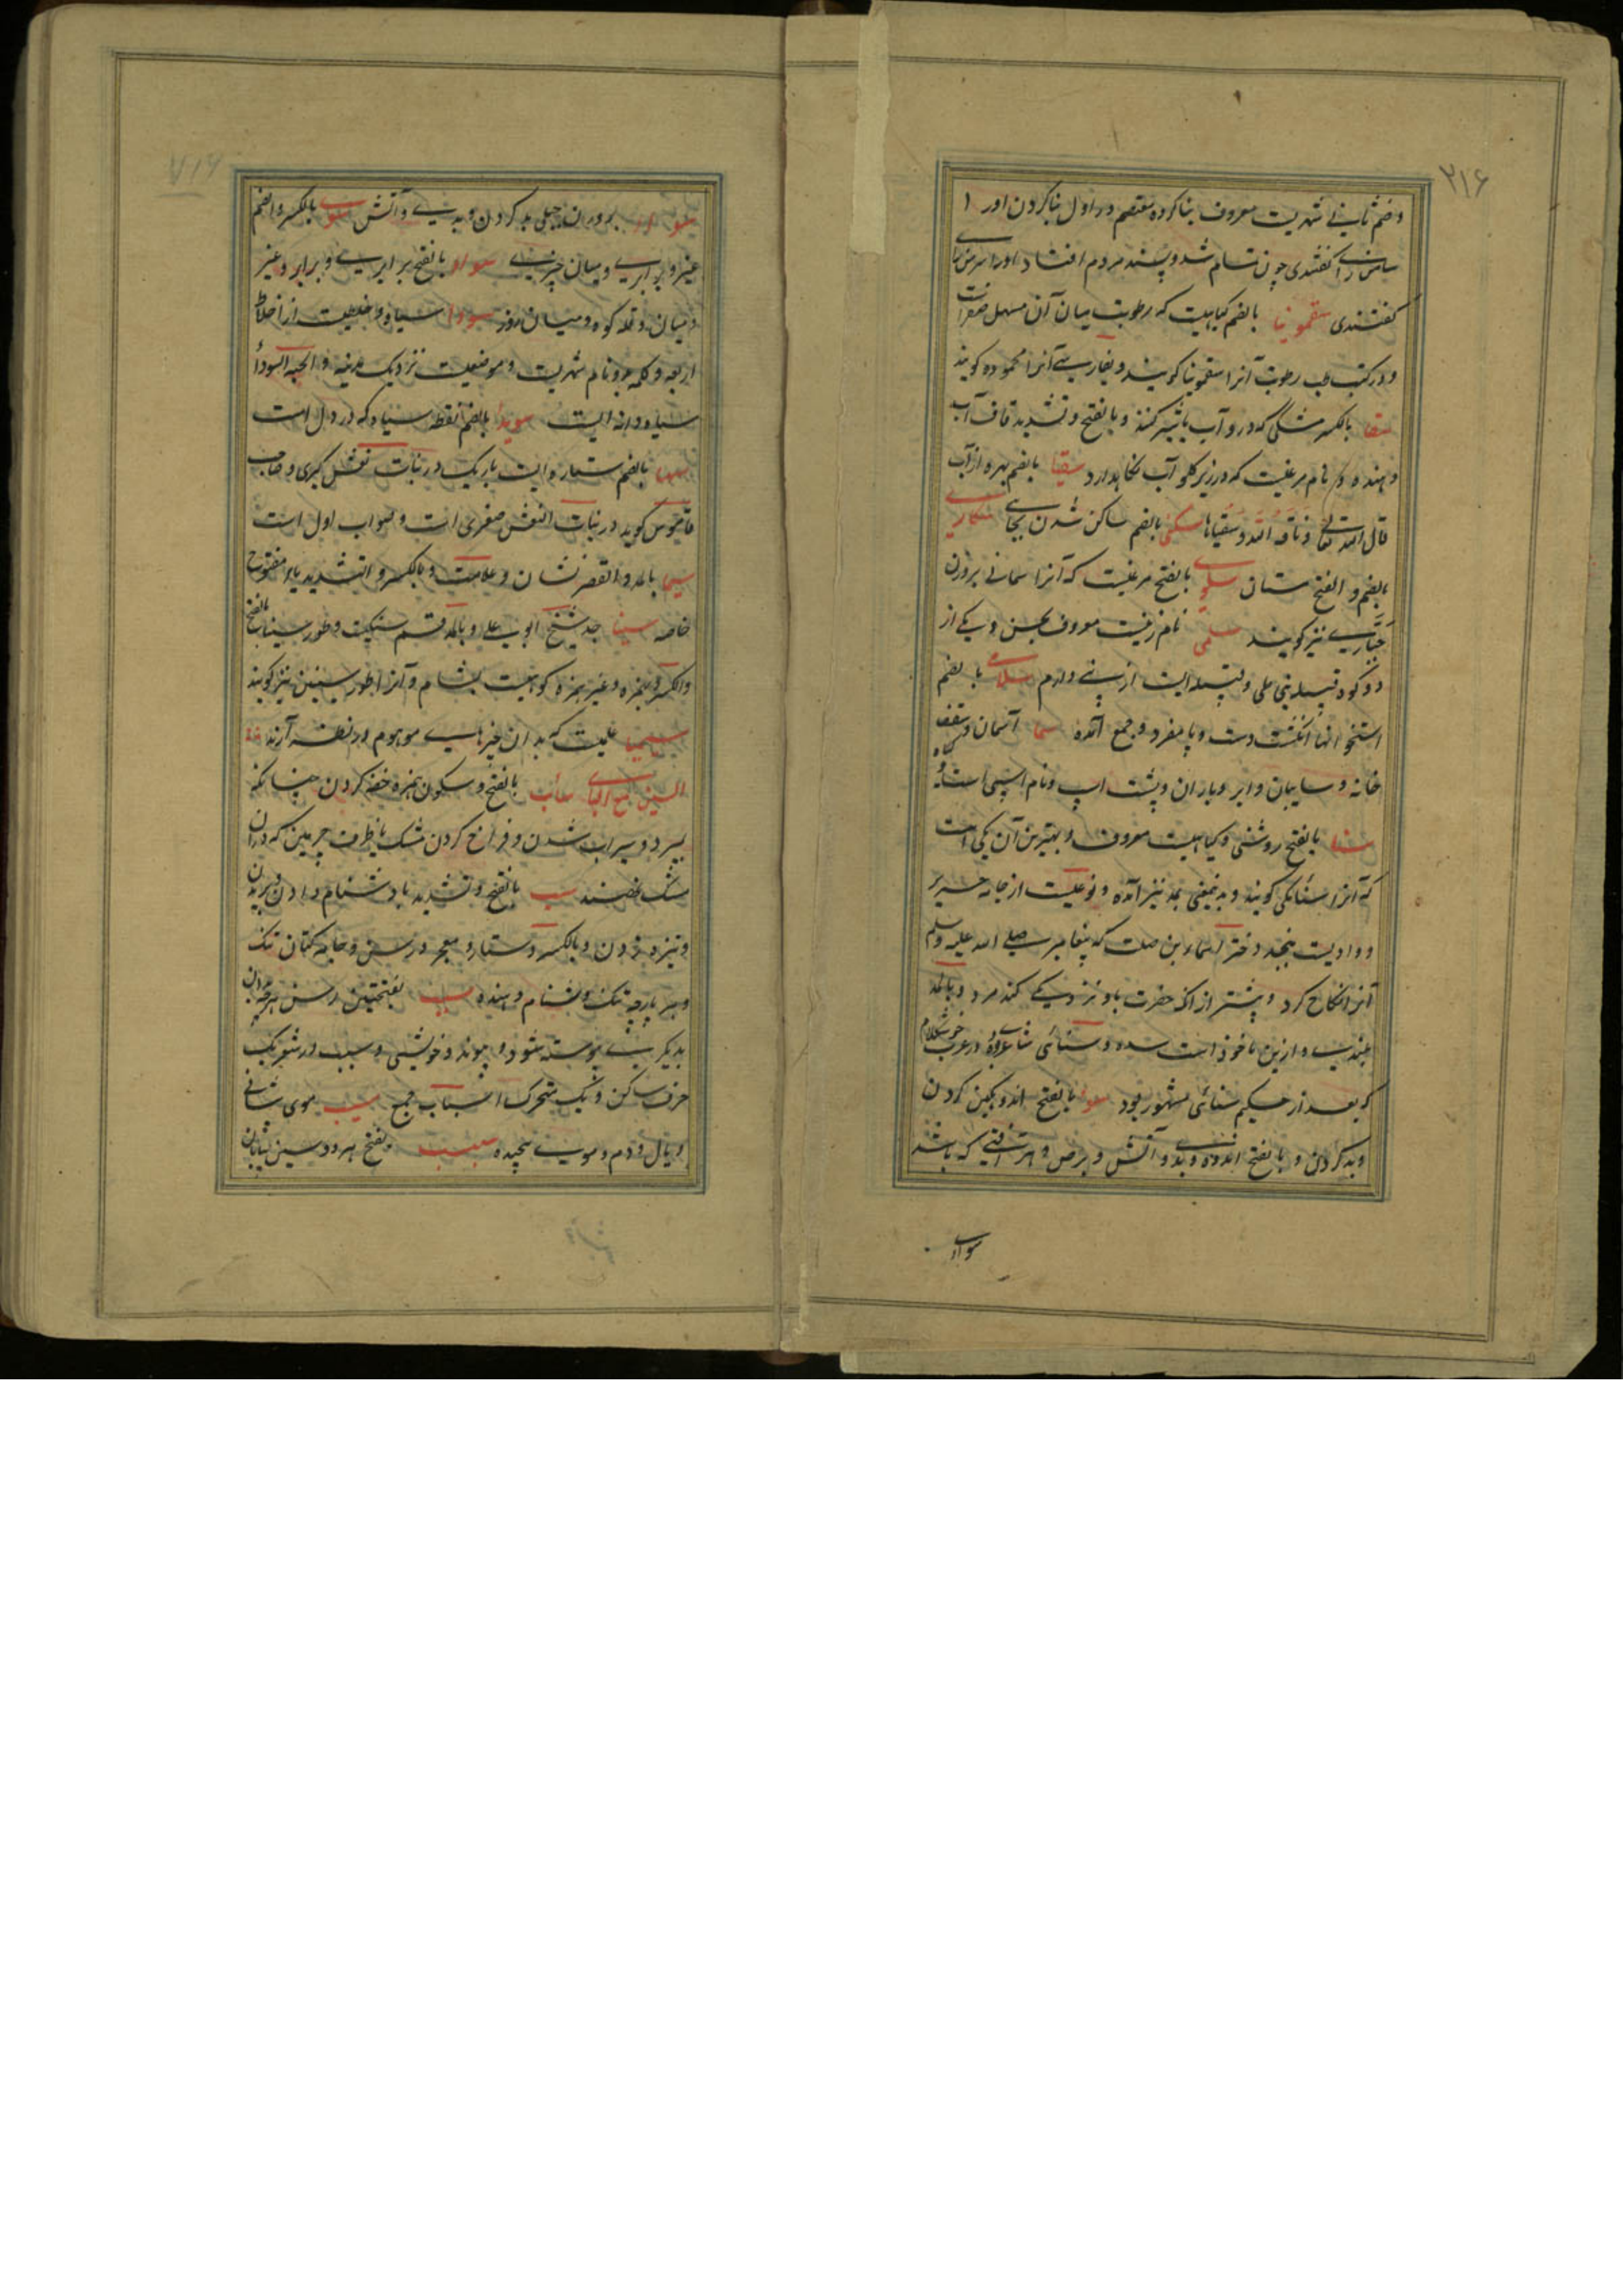 ۲۱۶
و ضم ثانی شهریست معروف بنا کرده معتصم در اول بنا کردن او را
ساء من رای گفتندی چون تمام شد و پسند مردم افتاد او را سر من رای
گفتندی سقمونیا بالضم گیاهیست که رطوبت میان آن مسهل صفراست
و در کتب طب رطوبت آنرا سقمونیا گویند و بفارسی آنرا محموده گویند
سقا بالکسر مشکی که در و آب یا شیر کنند و بالفتح و تشدید قاف آب
دهنده و نام مرغیست که در زیر گلو آب نگاهدارد سقیا بالضم بهره از آب
قال الله تعالی ناقة الله و سقیاها سکنی بالضم ساکن شدن بجای سکاری
بالضم و الفتح مستان سلوی بالفتح مرغیست که آنرا سمانی بروزن
حباری نیز گویند سلمی نام زنیست معروف بحسن و یکی از
دو کوه قبیله بنی طی و قبیله ایست از بنی دارم سلامی بالضم
استخوانهای انگشت دست و پا مفرد و جمع آمده سما آسمان و سقف
خانه و سایبان و ابر و باران و پشت اسپ و نام اسپی است و گیاه
سنا بالفتح روشنی و گیاهیست معروف و بهترین آن مکی است
که آنرا سنائ مکی گویند و بدین معنی بمد نیز آمده و نوعیست از جامه حریر
و وادیست بنجد و دختر اسماء بن صلت که پیغامبر صلی الله علیه و سلم
آنرا نکاح کرد و پیشتر از آنکه حضرت باو نزدیکی کند مرد و بالمد
بلندی و ازین ماخوذ است سنائی شاعری در غرب خوش کلام
که بعد از حکیم سنائی مشهور بود سوء بالفتح اندوهگین کردن
و بد کردن و بالفتح اندوه و بدی و آتش و برص و هر آفتی که باشد
سوای
سوای بروزن حبلی بد کردن و بدی و آتش سوی بالکسر و الضم
غیر و برابری و میان چیزی سواء بالفتح برابری و برابر و غیر
و میان و قله کوه و میان روز سودا سیاه و خلطیست از اخلاط
اربعه و کلمه و نام شهریست و موضعیست نزدیک مدینه و الحبة السوداء
سیاه دانه ایست سویدا بالضم نقطه سیاه که در دل است
سها بالضم ستاره ایست باریک در بنات نعش کبری و صاحب
قاموس گوید در بنات النعش صغری است و صواب اول است
سیما بالمد و القصر نشان و علامت و بالکسر و التشدید یاء مفتوح
خاصه سینا جد شیخ ابوعلی و بالمد قسم سنگیست و طور سینا بالفتح
و الکسر و بهمزه و غیر همزه کوهیست بشام و آنرا طور سینین نیز گویند
سیمیا علمیست که بدان چیزهای موهوم در نظر آرند
السین مع البای سأب بالفتح و سکون همزه خفه کردن چنانکه
بمیرد و سیراب شدن و فراخ کردن مشک یا ظرف چرمین که در آن
مشک نهند سب بالفتح و تشدید با دشنام دادن و بریدن
و نیزه زدن و بالکسر دستار و معجر و رسن و جامه کتان تنک
و هر پارچه تنک و دشنام دهنده سبب بفتحتین رسن و هر چه بآن
بدیگری پیوسته شود و پیوند و خویشی و سبب در شعر یک
حرف ساکن و یک متحرک اسباب جمع سبیب موی پیشانی
و یال و دم و موی پیچیده سبسب بفتح هر دو سین بیابان